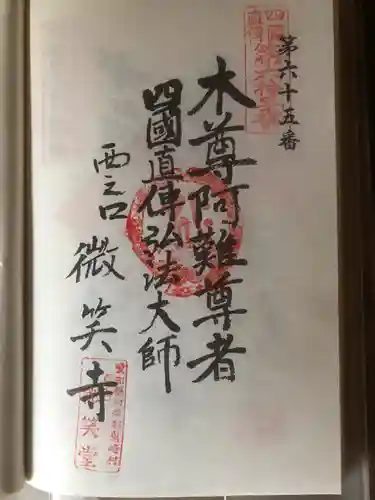 第六十五番
木尊阿難尊者
四國直傳弘法大師
西之口
微笑寺
笑堂